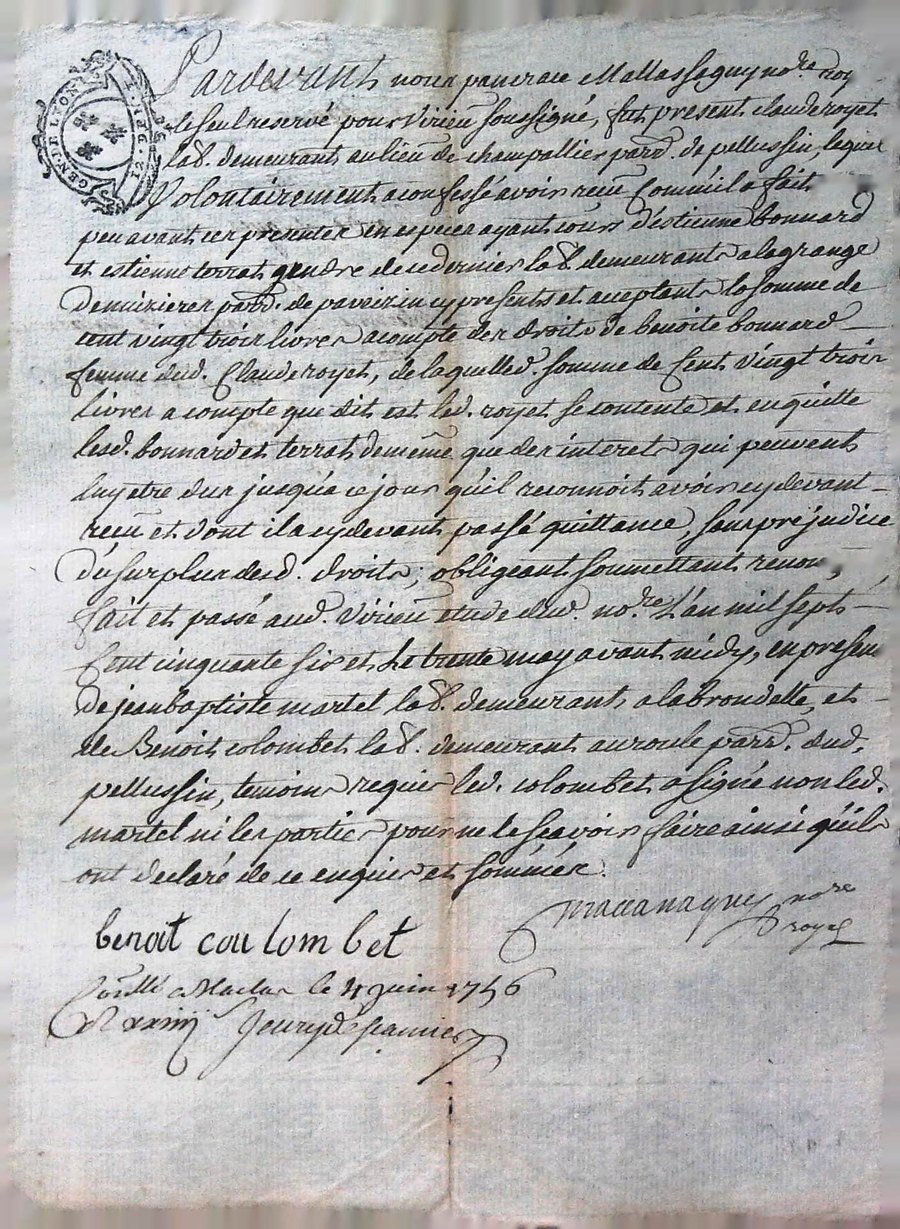 GEN. DE LYON
Pardevant nous pancrace Mallassagny no.re roy
le seul reservé pour Virieu soussigné, fut present claude royet
lab. demeurant au lieu de champallier parr. de pellussin, lequel
Volontairement a confessé avoir reçu comme il a fait
peu avant ces presentes en especes ayant cours d'estienne bonnard
et estienne terrat gendre de ce dernier lab. demeurants a la grange
de parr. de pavezin cy presents et acceptants la somme de
cent vingt trois livres acompte des droits de benoite bonnard
femme dud. Claude royet, de laquelle d. somme de Cent Vingt trois
livres a compte que dit est led. royet se contente et en quitte
lesd. bonnard et terrat de même que des interets qui peuvent
luy etre dus jusqu'a ce jour qu'il reconnoit avoir cydevant
reçu et dont il a cydevant passé quittance, sans prejudice
du surplus desd. droits; obligeant soumettant renon,
fait et passé aud. Virieu etude dud. no.re L'an mil sept
Cent cinquante six et le trente may avant midy, en presen
de jean baptiste martel lab. demeurant a la brondelle, et
de Benoit colombet lab. demeurant au roule parr. dud.
pellussin, temoins requis led. colombet a signé non led.
martel ni les parties pour ne le sçavoir faire ainsi qu'ils
ont declaré de ce enquis et sommés.
no.re
royal
benoit cou lom bet
Con.llé a Maclas le 4 juin 1756
R xxiiij s